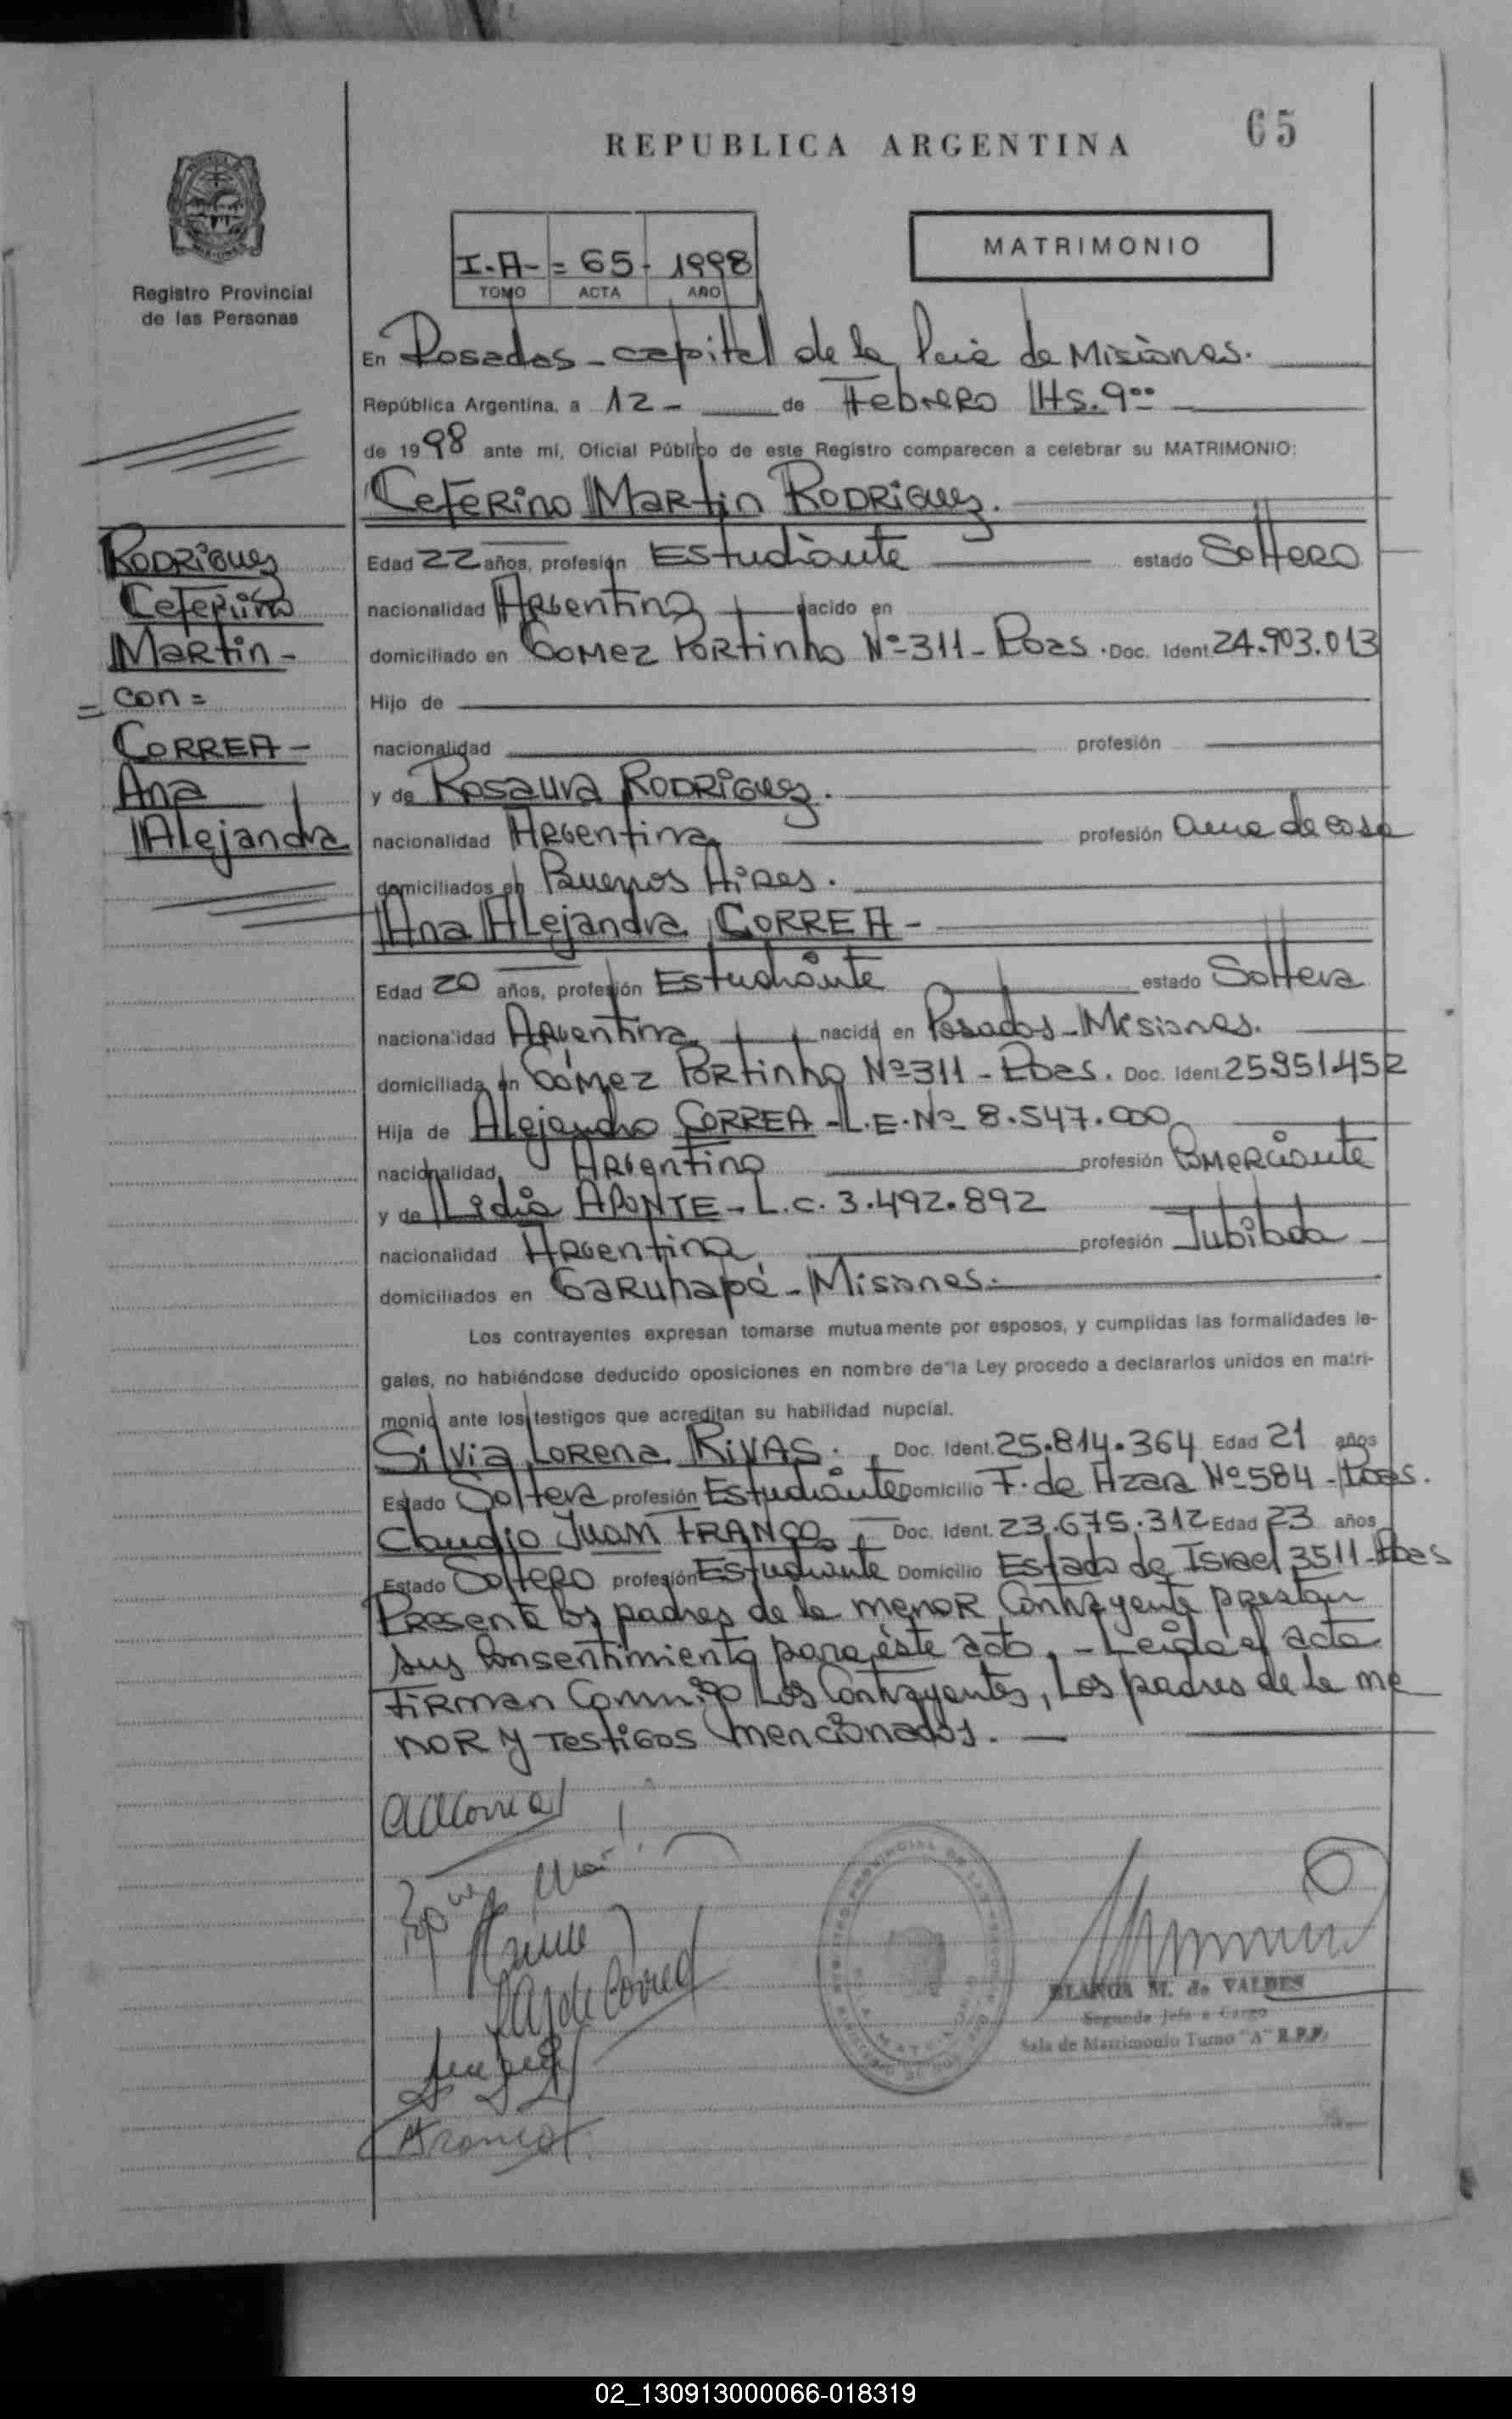 REPUBLICA ARGENTINA
65
Registro Provincial
de las Personas
I-A- = 65 - 1998
TOMO ACTA AÑO
MATRIMONIO
En Posadas - capital de la Pcia de Misiones.
República Argentina, a 12 - de Febrero Hs. 9⁰⁰
de 1998 ante mí, Oficial Público de este Registro comparecen a celebrar su MATRIMONIO:
Ceferino Martin RODRIGUEZ.
Edad 22 años, profesión Estudiante estado Soltero
nacionalidad Argentino nacido en
domiciliado en Gomez Portinho Nº 311 - Pdas. Doc. Ident. 24.903.013
Hijo de
nacionalidad profesión
y de Rosaura RODRIGUEZ.
nacionalidad Argentina profesión ama de casa
domiciliados en Buenos Aires.
RODRIGUEZ
Ceferino
Martin -
= con =
CORREA -
Ana
Alejandra
Ana Alejandra CORREA -
Edad 20 años, profesión Estudiante estado Soltera
nacionalidad Argentina nacida en Posadas - Misiones.
domiciliada en Gómez Portinho Nº 311 - Pdas. Doc. Ident. 25.951.452
Hija de Alejandro CORREA - L.E. Nº 8.547.000
nacionalidad Argentino profesión Comerciante
y de Lidia APONTE - L.C. 3.492.892
nacionalidad Argentina profesión Jubilada
domiciliados en Garuhapé - Misiones.
Los contrayentes expresan tomarse mutuamente por esposos, y cumplidas las formalidades le-
gales, no habiéndose deducido oposiciones en nombre de la Ley procedo a declararlos unidos en matri-
monio ante los testigos que acreditan su habilidad nupcial.
Silvia Lorena RIVAS. Doc. Ident. 25.814.364 Edad 21 años
Estado Soltera profesión Estudiante Domicilio F. de Azara Nº 584 - Pdas.
Claudio Juan FRANCO. Doc. Ident. 23.675.312 Edad 23 años
Estado Soltero profesión Estudiante Domicilio Estado de Israel 3511 - Pdas
Presente los padres de la menor Contrayente prestan
sus Consentimiento para éste acto. - Leida el acta
Firman Conmigo Los Contrayentes, Los padres de la me
nor y Testigos mencionados.
AACorrea
de Correa
BLANCA M. de VALDES
Segunda Jefa a Cargo
Sala de Matrimonio Turno "A" R.P.P.
02_130913000066-018319